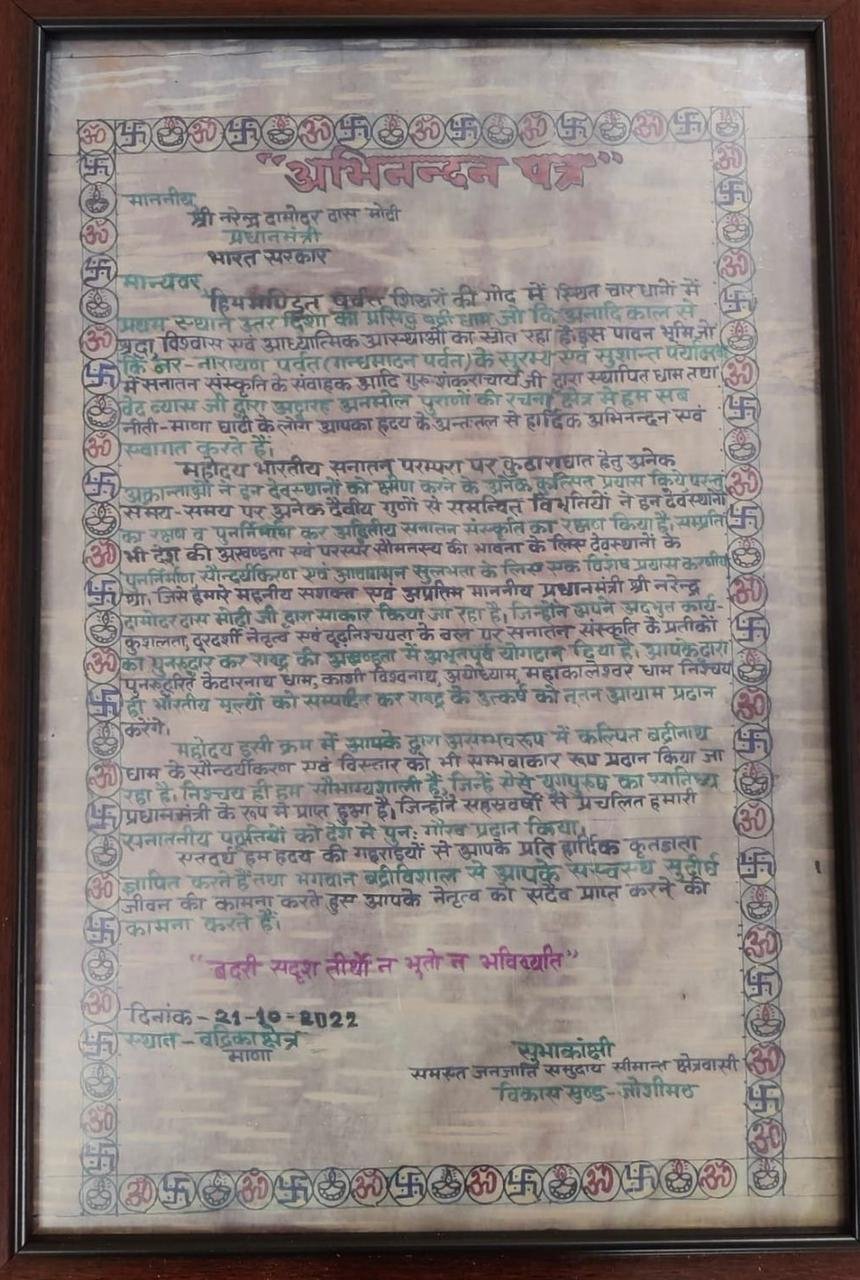 "अभिनन्दन पत्र"
माननीय
श्री नरेन्द्र दामोदर दास मोदी
प्रधानमंत्री
भारत सरकार
मान्यवर
हिममण्डित पर्वत शिखरों की गोद में स्थित चार धामों में
प्रथम स्थान उत्तर दिशा का प्रसिद्ध बद्री धाम जो कि अनादि काल से
श्रद्धा, विश्वास एवं आध्यात्मिक आस्थाओं का स्रोत रहा है। इस पावन भूमि जो
कि नर-नारायण पर्वत (गन्धमादन पर्वत) के सुरम्य एवं सुशान्त
में सनातन संस्कृति के संवाहक आदि गुरु शंकराचार्य जी द्वारा स्थापित धाम तथा
वेद व्यास जी द्वारा अट्ठारह अनमोल पुराणों की रचना क्षेत्र से हम सब
नीती-माणा घाटी के लोग आपका हृदय के अन्तःतल से हार्दिक अभिनन्दन एवं
स्वागत करते हैं।
महोदय भारतीय सनातन परम्परा पर कुठाराघात हेतु अनेक
अक्रान्ताओं ने इन देवस्थानों को क्षीण करने के अनेक कुत्सित प्रयास किये परन्तु
समय-समय पर अनेक दैवीय गुणों से समन्वित विभूतियों ने इन देवस्थानों
का रक्षण व पुनर्निर्माण कर अद्वितीय सनातन संस्कृति का रक्षण किया है, सम्प्रति
भी देश की अखण्डता एवं परस्पर सौमनस्य की भावना के लिए देवस्थानों के
पुनर्निर्माण सौन्दर्यीकरण एवं आवागमन सुलभता के लिए एक विशेष प्रयास करणीय
था, जिसे हमारे महनीय सशक्त एवं अप्रतिम माननीय प्रधानमंत्री श्री नरेन्द्र
दामोदर दास मोदी जी द्वारा साकार किया जा रहा है, जिन्होंने अपने अद्भुत कार्य-
कुशलता, दूरदर्शी नेतृत्व एवं दृढ़निश्चयता के बल पर सनातन संस्कृति के प्रतीकों
को पुनरुद्धार कर राष्ट्र की अखण्डता में अभूतपूर्व योगदान दिया है। आपके द्वारा
पुनरुद्धारित केदारनाथ धाम, काशी विश्वनाथ, अयोध्याम, महाकालेश्वर धाम निश्चय
ही भारतीय मूल्यों को सम्पादित कर राष्ट्र के उत्कर्ष को नूतन आयाम प्रदान
करेंगे।
महोदय इसी क्रम में आपके द्वारा असम्भवरूप में कल्पित बद्रीनाथ
धाम के सौन्दर्यीकरण एवं विस्तार को भी सम्भवाकार रूप प्रदान किया जा
रहा है, निश्चय ही हम सौभाग्यशाली हैं, जिन्हें ऐसे युगपुरुष का सानिध्य
प्रधानमंत्री के रूप में प्राप्त हुआ है, जिन्होंने सहस्रवर्षों से प्रचलित हमारी
सनातनीय पद्धतियों को देश में पुनः गौरव प्रदान किया।
एतदर्थ हम हृदय की गहराईयों से आपके प्रति हार्दिक कृतज्ञता
ज्ञापित करते हैं तथा भगवान बद्रीविशाल से आपके सुदीर्घ
जीवन की कामना करते हुए आपके नेतृत्व को सदैव प्राप्त करने की
कामना करते हैं।
"बदरी सदृश तीर्थो न भूतो न भविष्यति"
दिनांक - 21-10-2022
स्थान - बद्रिका क्षेत्र
माणा
सुभाकांक्षी
समस्त जनजाति समुदाय सीमान्त क्षेत्रवासी
विकास खण्ड - जोशीमठ